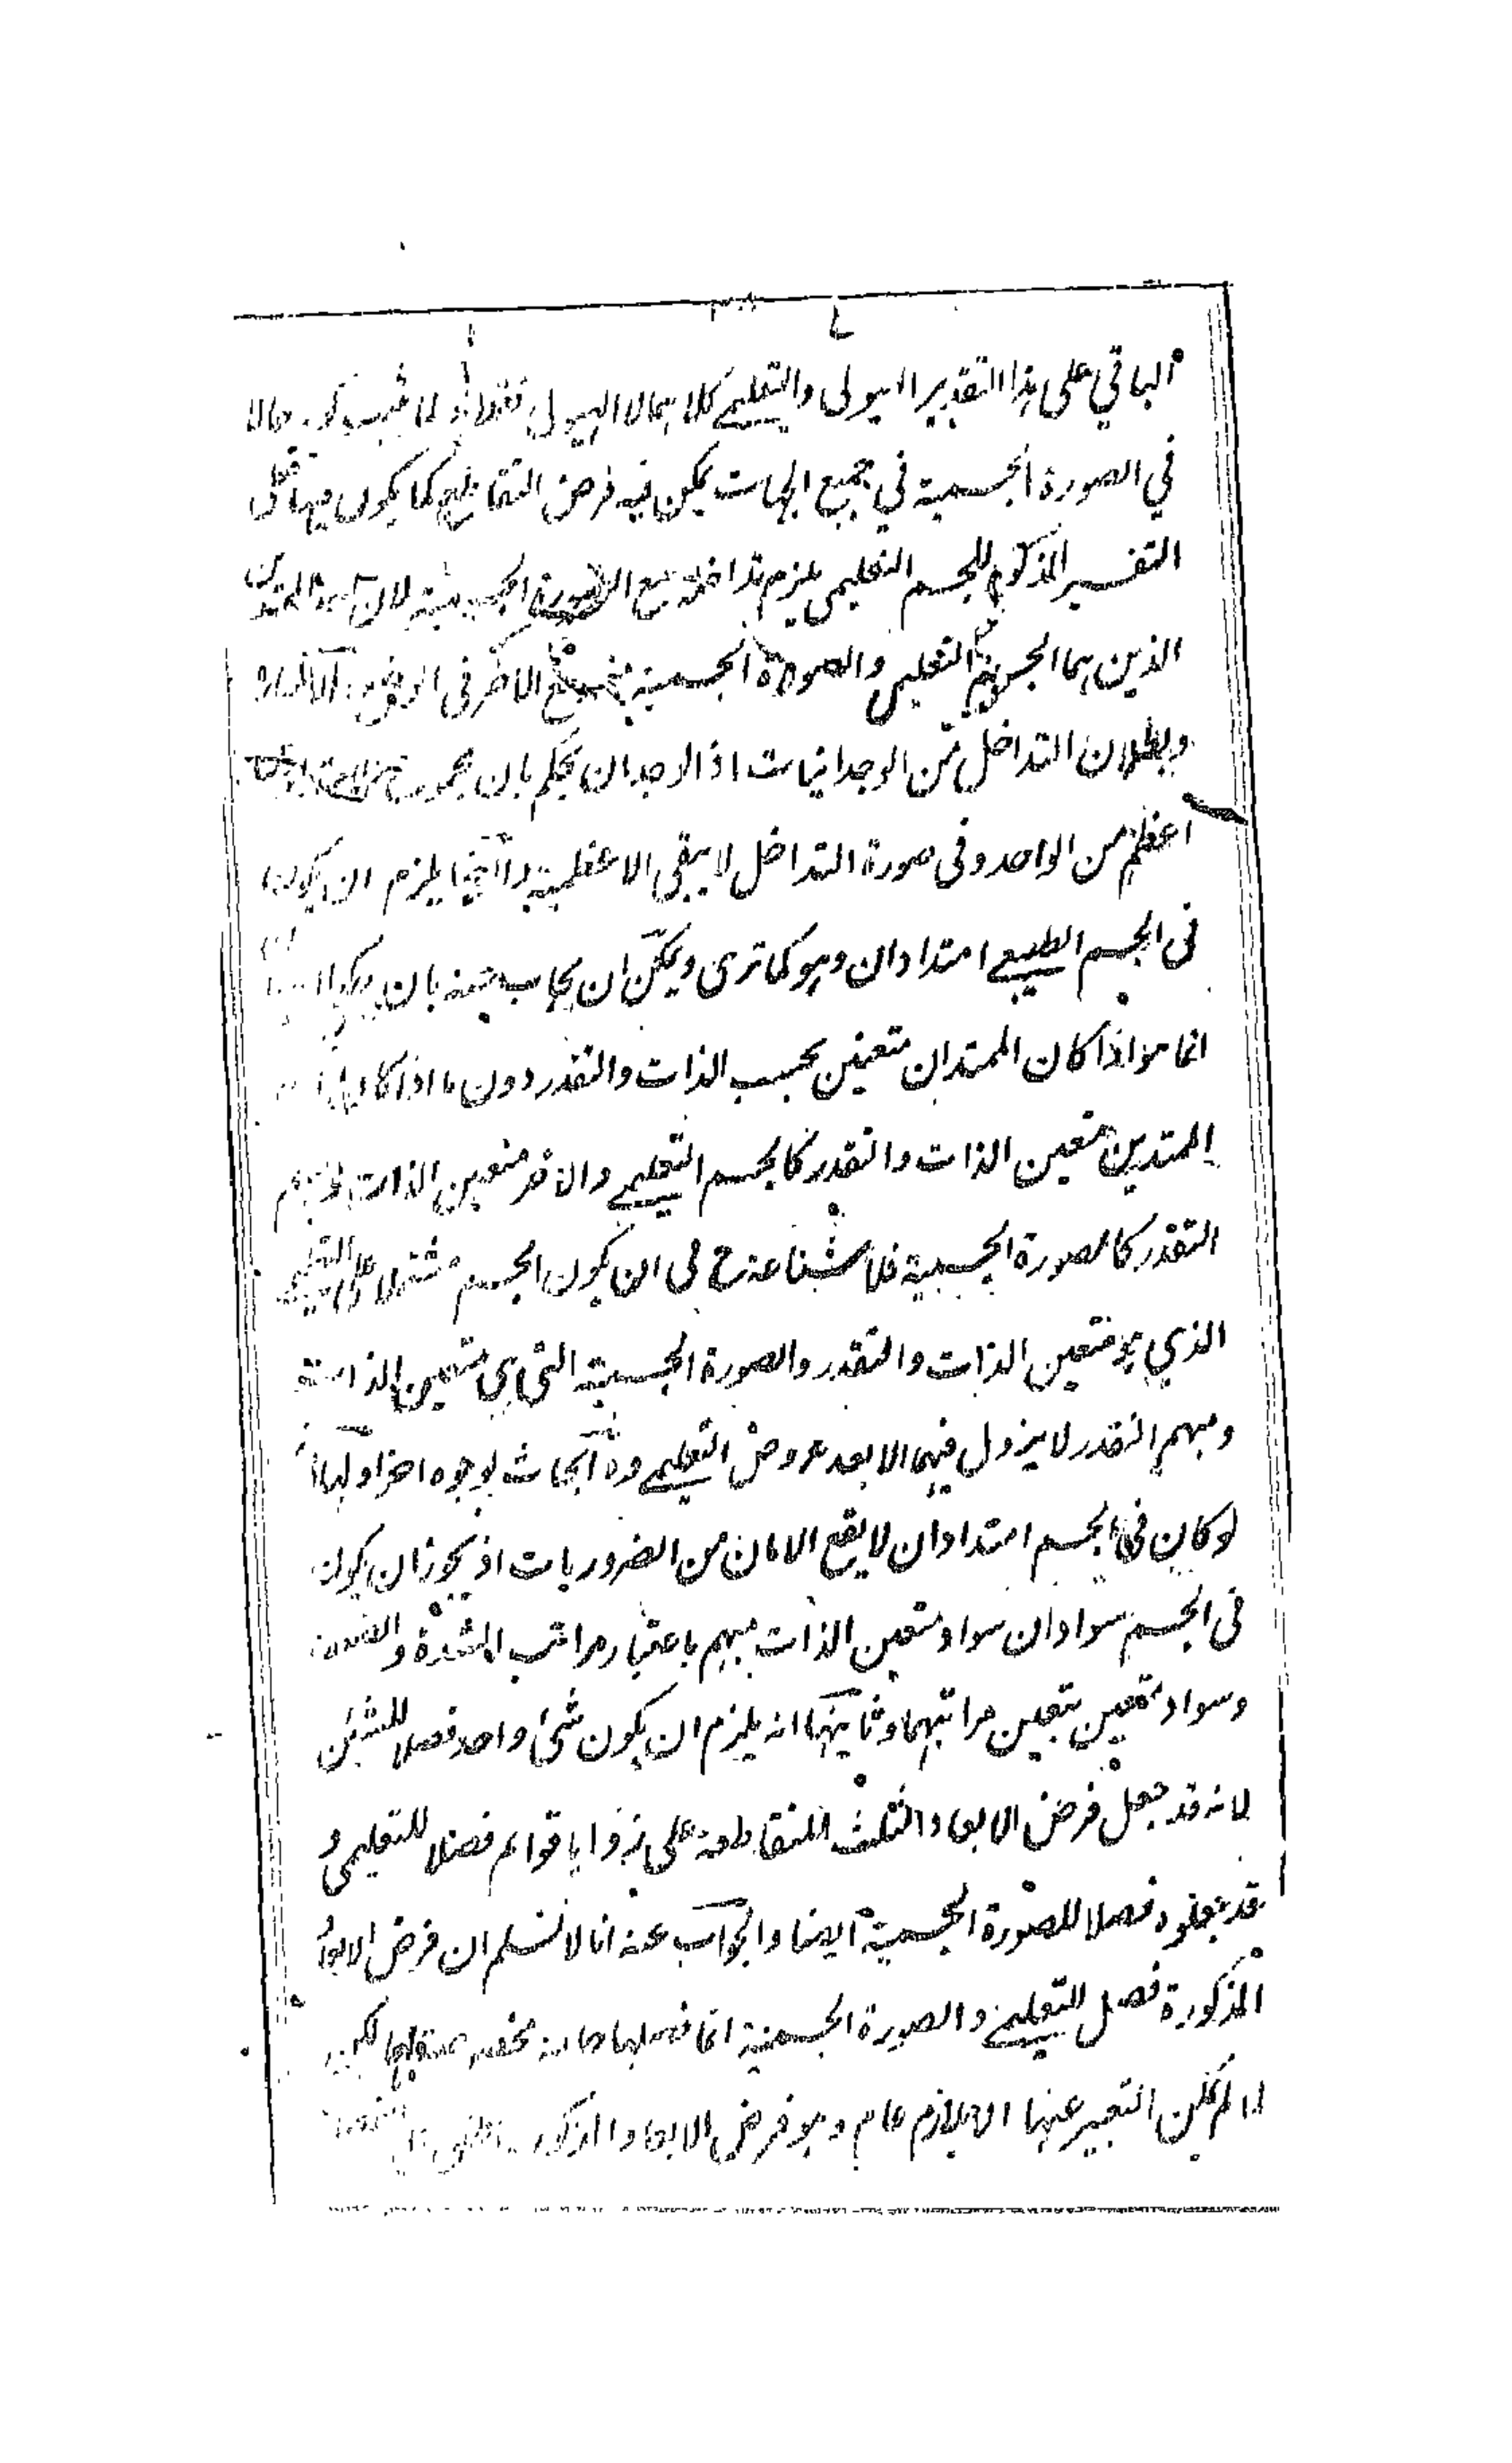 الباقي على هذا التقدير الهيولى والتعليمي كلاهما لا الهيولى فقط
في الصورة الجسمية في جميع الجهات يمكن فيه فرض التقاطع كما يكون فيها
التفسير المذكور للجسم التعليمي يلزم تداخله مع الصورة الجسمية لان
الذين هما الجسم التعليمي والصورة الجسمية الاخر في
وبطلان التداخل من الوجدانيات اذ الوجدان يحكم بان مجموع
اعظم من الواحد وفي صورة التداخل لا يبقى الاعظمية يلزم ان يكون
في الجسم الطبيعي امتدادان وهو كما ترى ويمكن ان يجاب عنه بان
انما هو اذا كان الممتدان متعينين بحسب الذات والتقدر دون ما اذا كان
الممتدين متعين الذات والتقدر كالجسم التعليمي والاخر متعين الذات
التقدر كالصورة الجسمية فلا شناعة ح في ان يكون الجسم مشتملا على التعليمي
الذي هو متعين الذات والتقدر والصورة الجسمية التي هي متعين الذات
ومبهم التقدر لا يزول فيهما الا بعد عروض التعليمي وههنا ابحاث بوجوه اخر اولها
لو كان في الجسم امتدادان لا يقع الامان من الضروريات اذ يجوز ان يكون
في الجسم سوادان سواد متعين الذات مبهم باعتبار مراتب الشدة والضعف
وسواد متعين بتعين مراتبهما وثانيها انه يلزم ان يكون شئ واحد فصلا للشئين
لانه قد جعل فرض الابعاد الثلث المتقاطعة على زوايا قوائم فصلا للتعليمي و
قد جعلوه فصلا للصورة الجسمية ايضا والجواب عنه انا لا نسلم ان فرض الابعاد
المذكورة فصل للتعليمي والصورة الجسمية انما فصلها لكن
لما لم يمكن التعبير عنها الا بلازم عام وهو فرض الابعاد المذكورة